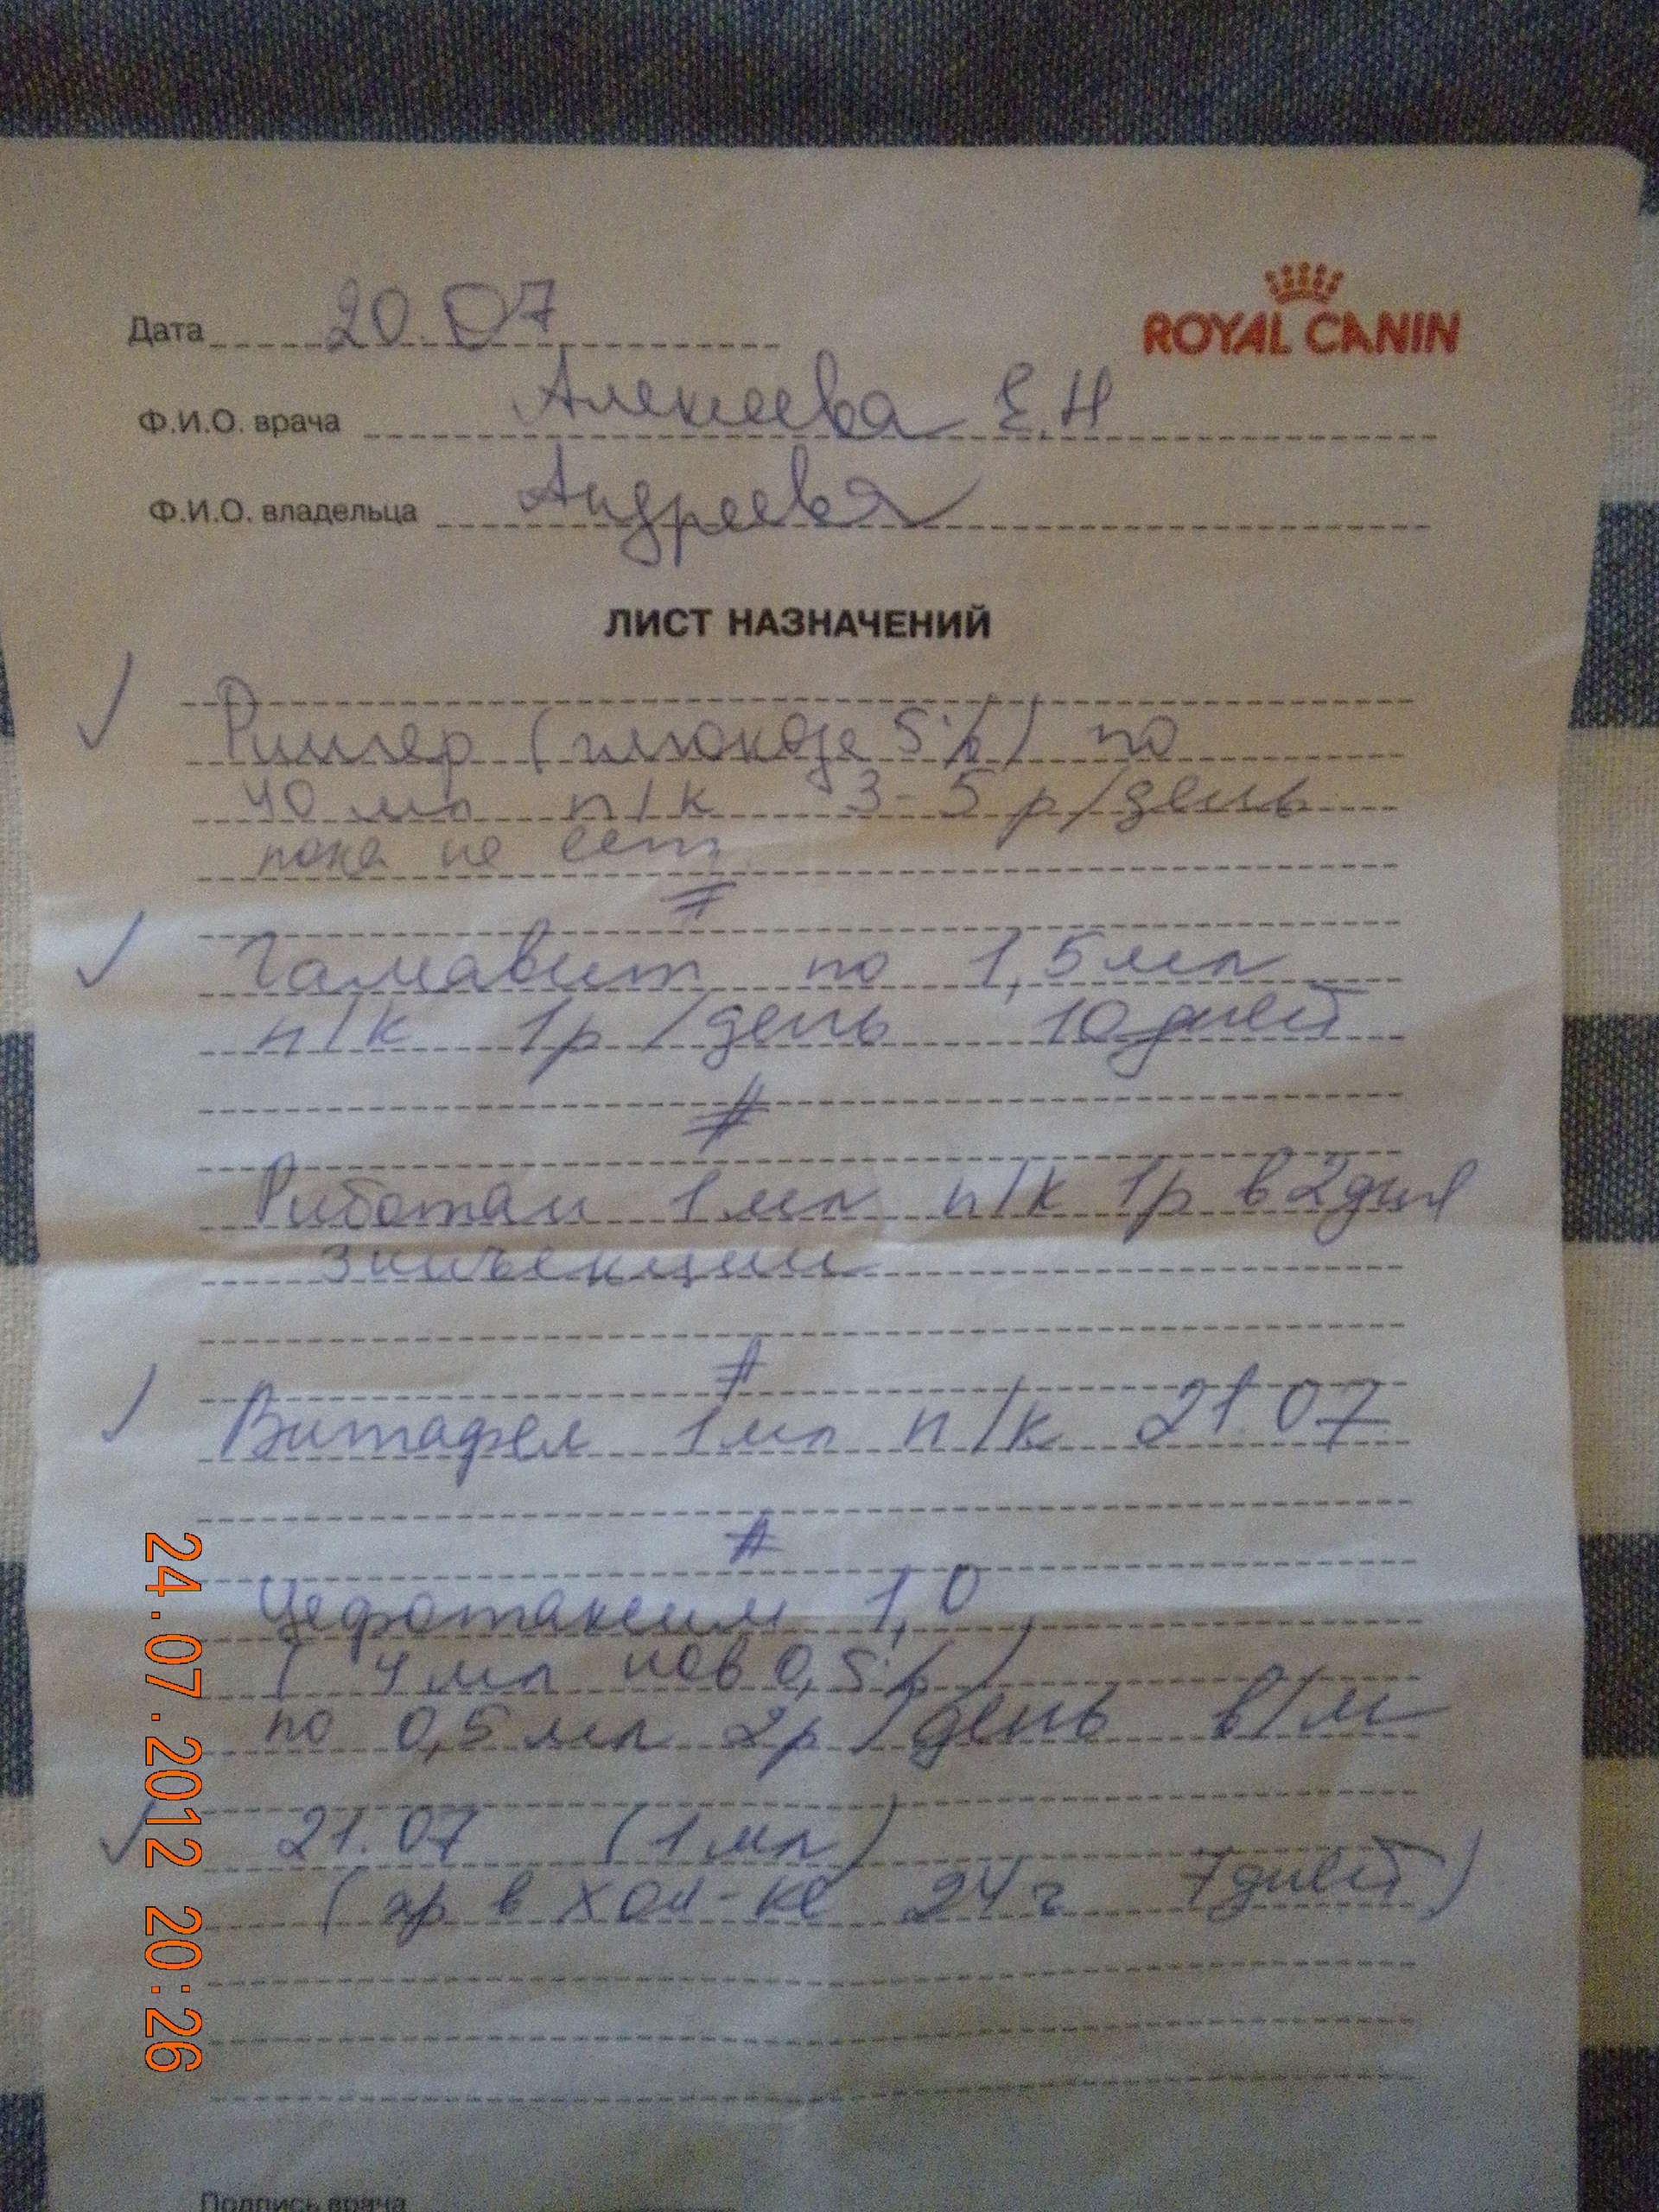 ROYAL CANIN
Дата 20.07
Ф.И.О. врача Алексеева Е.Н
Ф.И.О. владельца Андреева
ЛИСТ НАЗНАЧЕНИЙ
Рингер (глюкоза 5%) по
40 мл п/к 3-5 р/день
пока не ест
#
Гамавит по 1,5 мл
п/к 1р/день 10 дней
#
Риботан 1 мл п/к 1р в 2 дня
3 инъекции
#
Витафел 1 мл п/к 21.07
#
Цефотаксим 1,0
( 4 мл нов 0,5%)
по 0,5 мл 2р/день в/м
21.07 (1 мл)
(хр в хол-ке 24 г 7 дней)
Подпись врача
24.07.2012 20:26